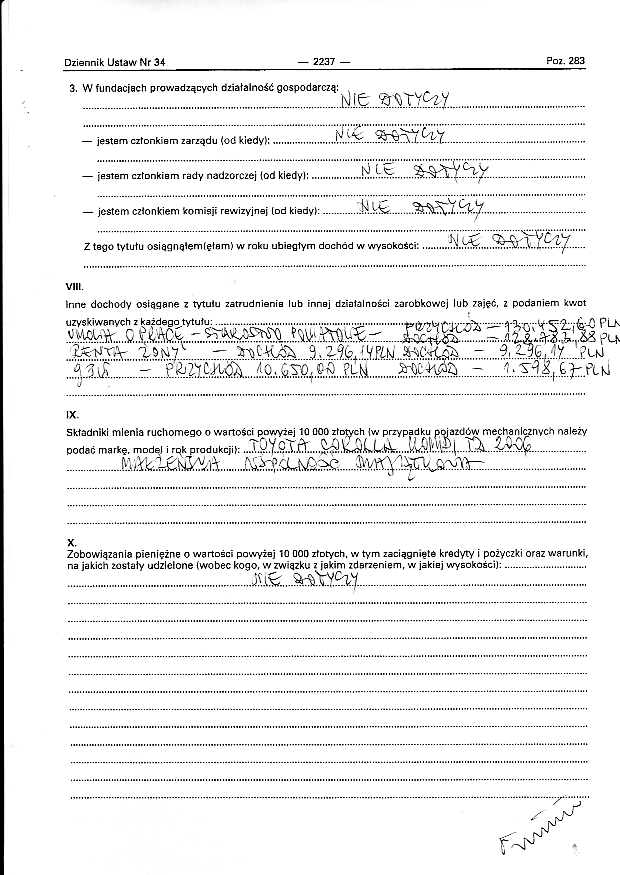 Dziennik Ustaw Nr 34 — 2237 — Poz. 283
3. W fundacjach prowadzących działalność gospodarczą: NIE DOTYCZY
— jestem członkiem zarządu (od kiedy): NIE DOTYCZY
— jestem członkiem rady nadzorczej (od kiedy): NIE DOTYCZY
— jestem członkiem komisji rewizyjnej (od kiedy): NIE DOTYCZY
Z tego tytułu osiągnąłem(ęłam) w roku ubiegłym dochód w wysokości: NIE DOTYCZY
VIII.
Inne dochody osiągane z tytułu zatrudnienia lub innej działalności zarobkowej lub zajęć, z podaniem kwot
uzyskiwanych z każdego tytułu: PRZYCHÓD – 130.452,60 PLN
UMOWA O PRACĘ – STAROSTWO POWIATOWE – DOCHÓD
RENTA ŻONY – DOCHÓD 9.296,14 PLN DOCHÓD – 9.296,14 PLN
– PRZYCHÓD 10.650,00 PLN DOCHÓD – 1.598,67 PLN
IX.
Składniki mienia ruchomego o wartości powyżej 10 000 złotych (w przypadku pojazdów mechanicznych należy
podać markę, model i rok produkcji): TOYOTA COROLLA KOMBI 2006
MAŁŻEŃSKA WSPÓLNOŚĆ MAJĄTKOWA
X.
Zobowiązania pieniężne o wartości powyżej 10 000 złotych, w tym zaciągnięte kredyty i pożyczki oraz warunki,
na jakich zostały udzielone (wobec kogo, w związku z jakim zdarzeniem, w jakiej wysokości):
NIE DOTYCZY